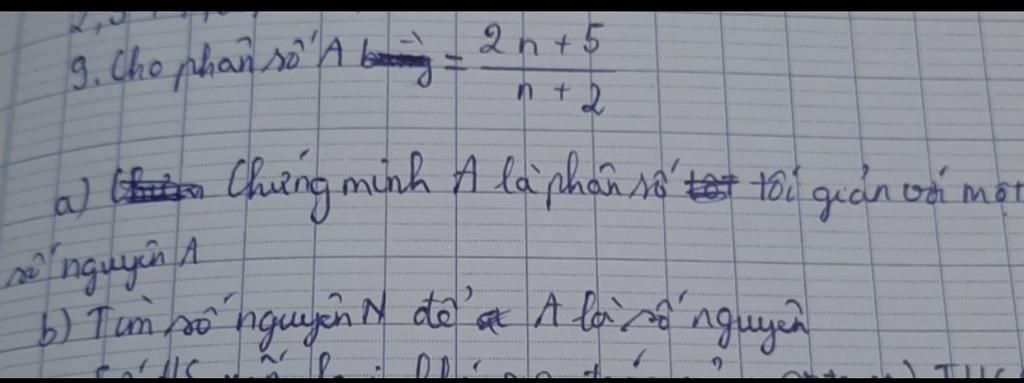 9. Cho phân số A = \frac{2n+5}{n+2}
a) Chứng minh A là phân số tối giản với một
số nguyên A
b) Tìm số nguyên N để A là số nguyên